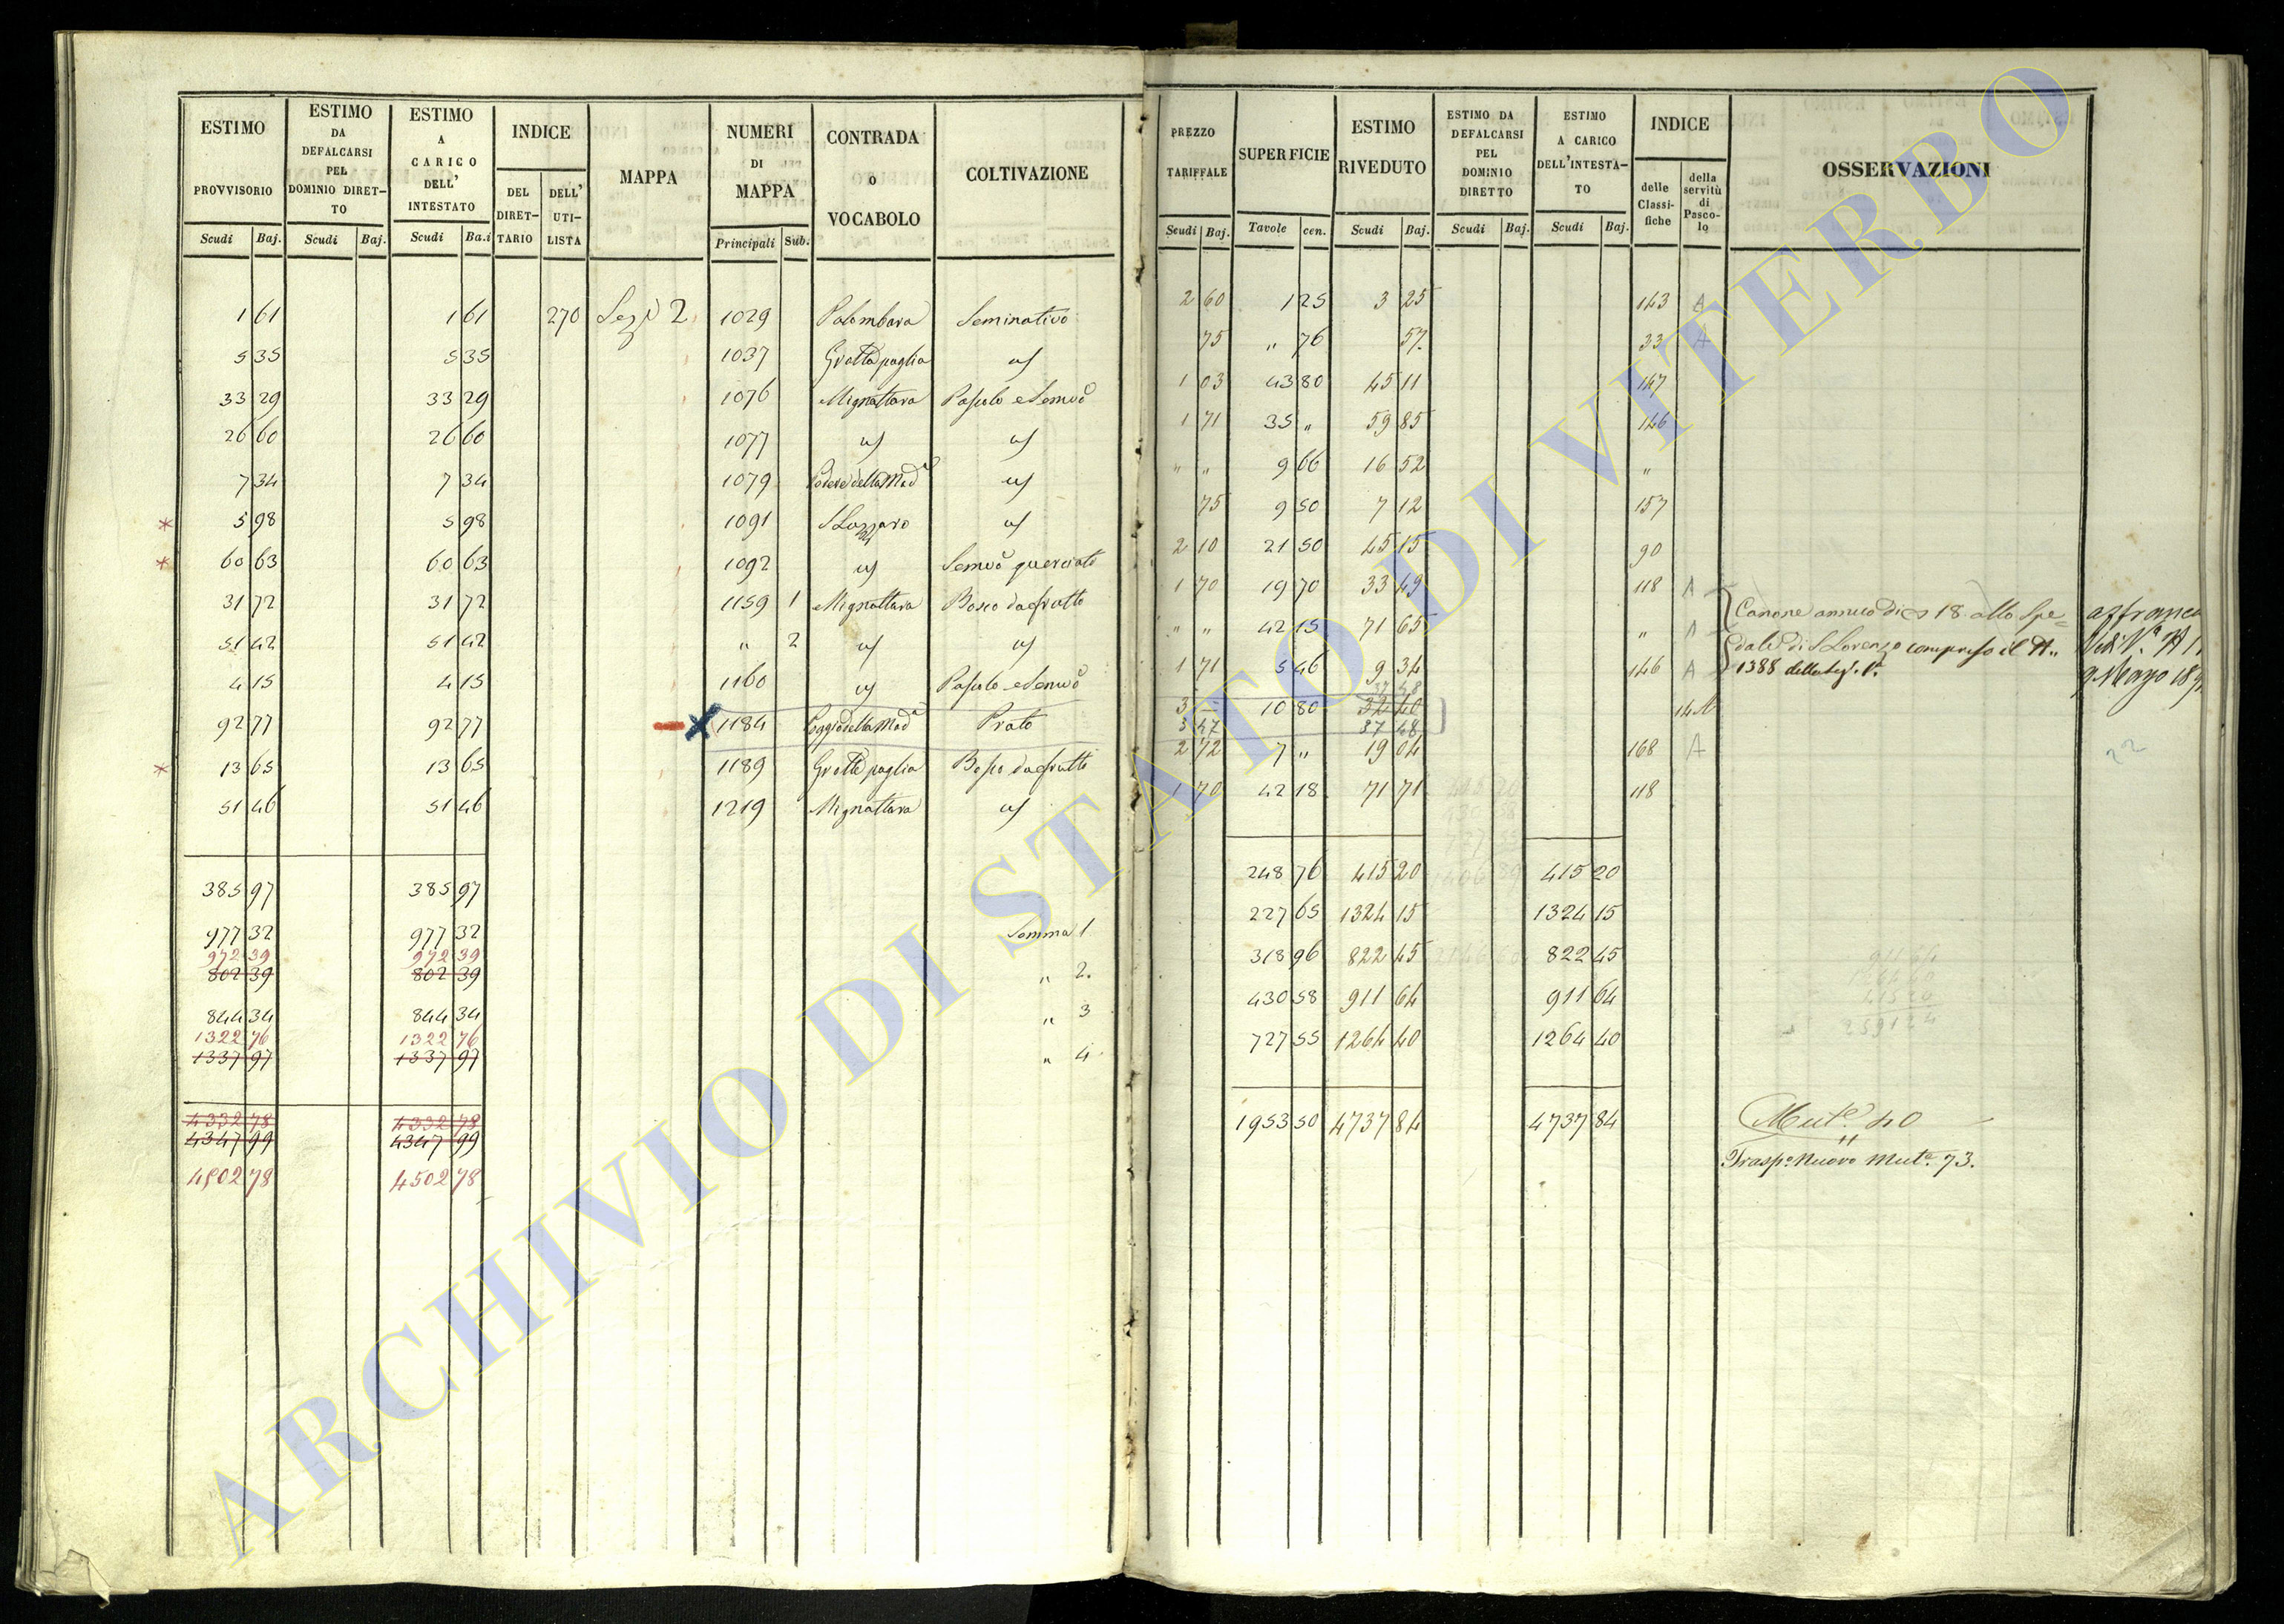 ESTIMO PROVVISORIO | ESTIMO DA DEFALCARSI PEL DOMINIO DIRET-TO | ESTIMO A CARICO DELL' INTESTATO | INDICE | MAPPA | NUMERI DI MAPPA | CONTRADA O VOCABOLO | COLTIVAZIONE
Scudi | Baj. | Scudi | Baj. | Scudi | Ba.i | DEL DIRET-TARIO | DELL' UTI-LISTA | Principali | Sub.
1 61 | 1 61 | 270 | Sez. 2 | 1029 | Palombara | Seminativo
5 35 | 5 35 | 1037 | Grotta paglia | id
33 29 | 33 29 | 1076 | Mignattara | Pascolo e Semvo
26 60 | 26 60 | 1077 | id | id
7 34 | 7 34 | 1079 | Podere della Mada | id
* 5 98 | 5 98 | 1091 | S Lazzaro | id
* 60 63 | 60 63 | 1092 | id | Semvo querciato
31 72 | 31 72 | 1159 | 1 | Mignattara | Bosco da frutto
51 42 | 51 42 | " | 2 | id | id
4 15 | 4 15 | 1160 | id | Pascolo e Semvo
92 77 | 92 77 | 1184 | Poggio della Mada | Prato
* 13 65 | 13 65 | 1189 | Grotte paglia | Bosco da frutto
51 46 | 51 46 | 1219 | Mignattara | id
385 97 | 385 97
977 32 | 977 32 | Somma 1
972 39 | 972 39
802 39 | 802 39 | " 2.
844 34 | 844 34 | " 3
1322 76 | 1322 76
1337 97 | 1337 97 | " 4.
4332 78 | 4332 78
4347 99 | 4347 99
4502 78 | 4502 78
PREZZO TARIFFALE | SUPERFICIE | ESTIMO RIVEDUTO | ESTIMO DA DEFALCARSI PEL DOMINIO DIRETTO | ESTIMO A CARICO DELL'INTESTA-TO | INDICE | OSSERVAZIONI
Scudi | Baj. | Tavole | cen. | Scudi | Baj. | Scudi | Baj. | Scudi | Baj. | delle Classi-fiche | della servitù di Pasco-lo
2 60 | 1 25 | 3 25 | 143 | A
75 | " 76 | 57 | 33 | A
1 03 | 43 80 | 45 11 | 147
1 71 | 35 " | 59 85 | 146
" " | 9 66 | 16 52 | "
75 | 9 50 | 7 12 | 157
2 10 | 21 50 | 45 15 | 90
1 70 | 19 70 | 33 49 | 118 | A | Canone annuo di s 18 allo Spe=
" " | 42 15 | 71 65 | " | A | dale di S Lorenzo compreso il N.
1 71 | 5 46 | 9 34 | 146 | A | 1388 della Sez. 1a.
37 48
3 - | 10 80 | 32 40 | 14
3 47 | 37 48
2 72 | 7 " | 19 04 | 168 | A
1 70 | 42 18 | 71 71 | 118
22
248 76 | 415 20 | 415 20
227 65 | 1324 15 | 1324 15
318 96 | 822 45 | 822 45
430 58 | 911 64 | 911 64
727 55 | 1264 40 | 1264 40
1953 50 | 4737 84 | 4737 84
Mute. 40
"
Traspo. Nuovo Muta. 73.
ARCHIVIO DI STATO DI VITERBO